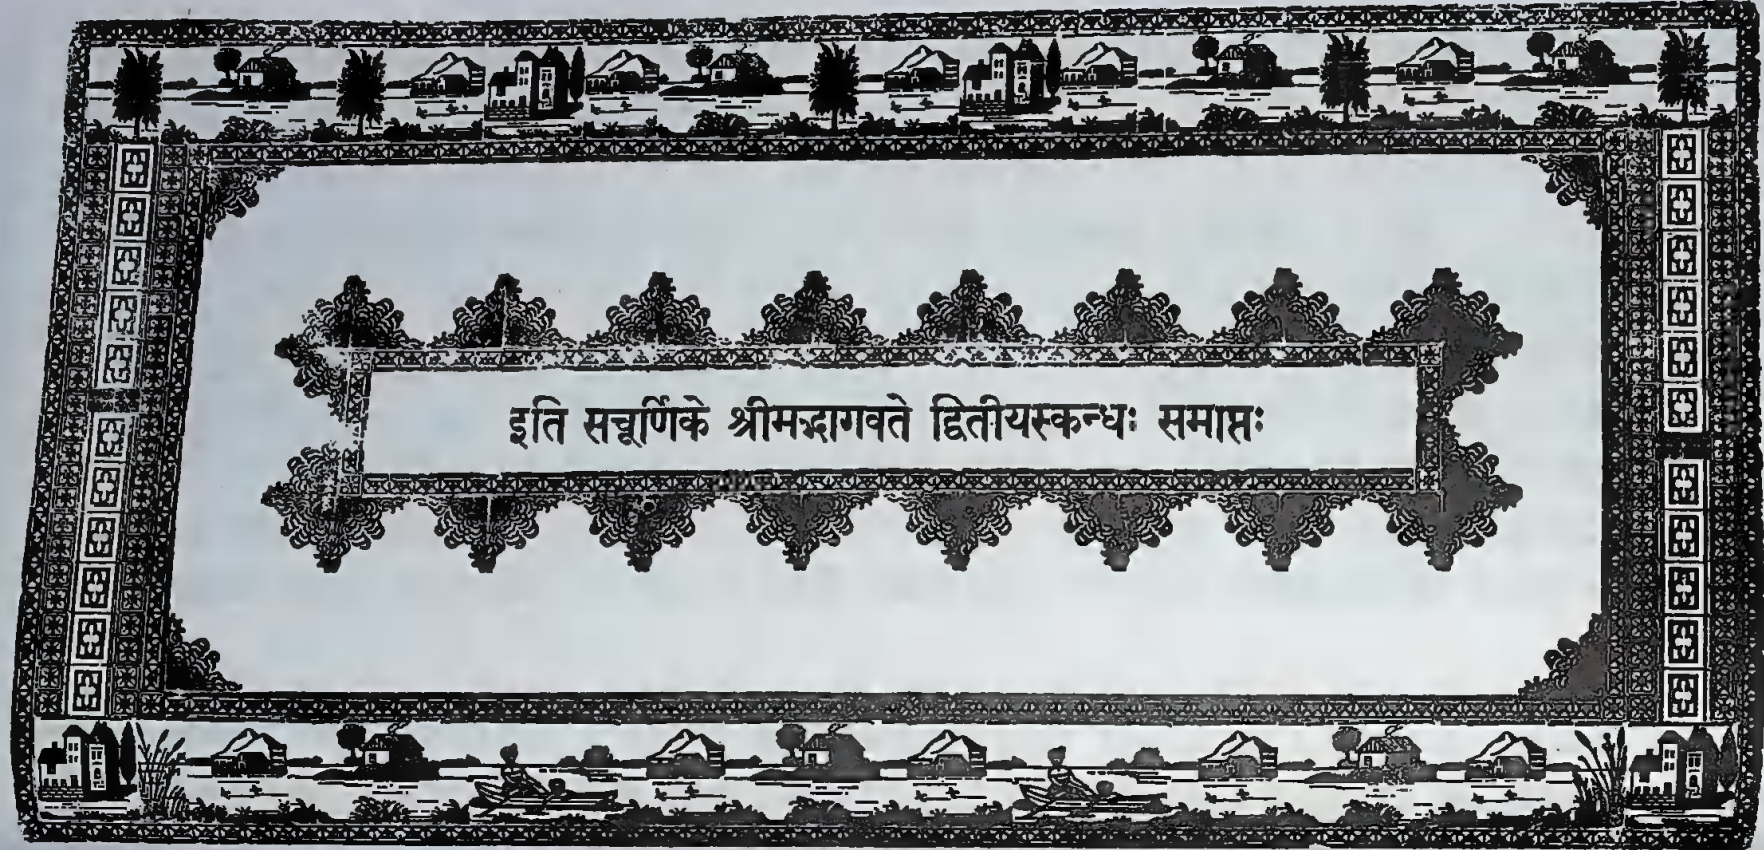 इति सचूर्णिके श्रीमद्भागवते द्वितीयस्कन्धः समाप्तः